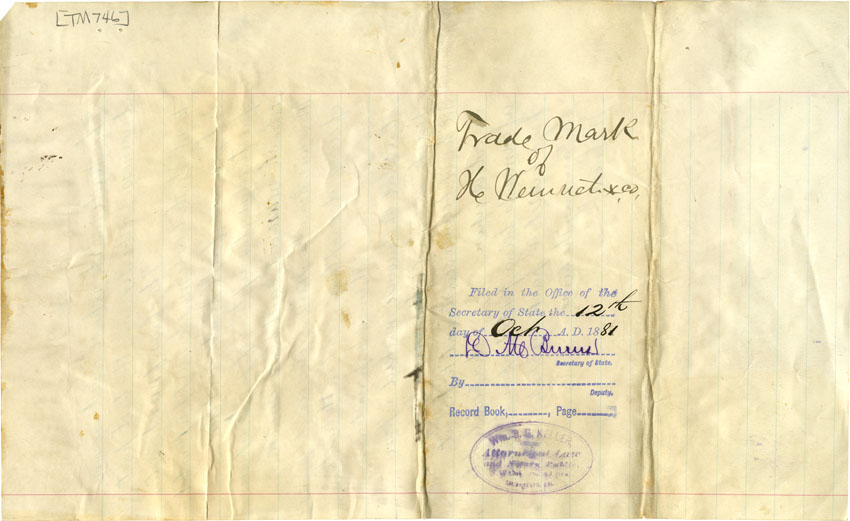 [TM746]
Trade Mark
of
H Weinreich & Co,
Filed in the Office of the
Secretary of State the 12th
day of Oct A. D. 1881
D M Burns
Secretary of State.
By
Deputy.
Record Book, , Page
Wm. B. C. KELLER
Attorney at Law
and Notary Public